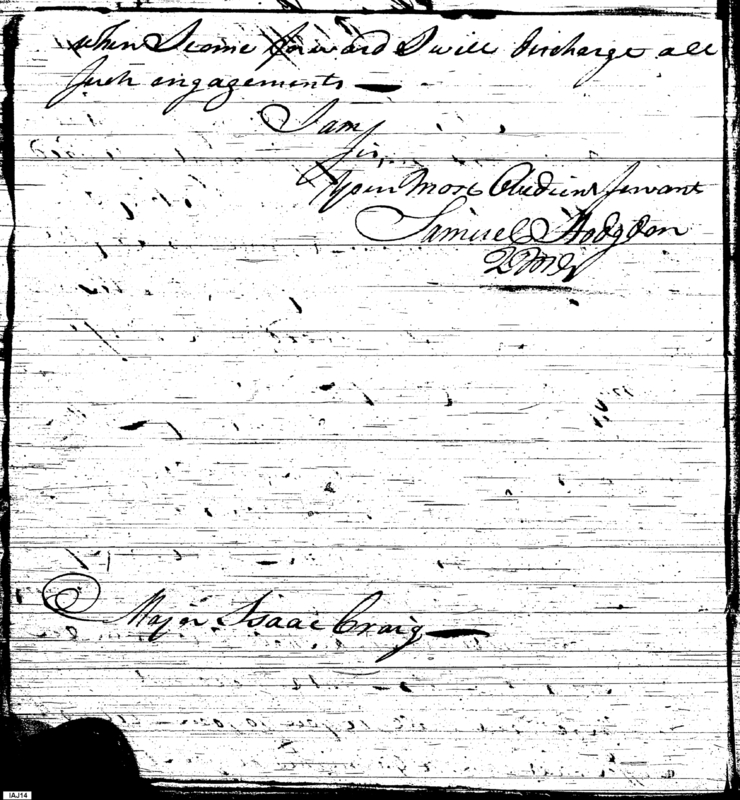 when I come forward I will discharge all
such engagements —
I am
Sir,
Your Most Obedient Servant
Samuel Hodgdon
QMG
Major Isaac Craig —
IAJ14